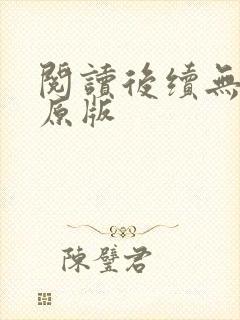 閱讀後續無
原版
陳璧君